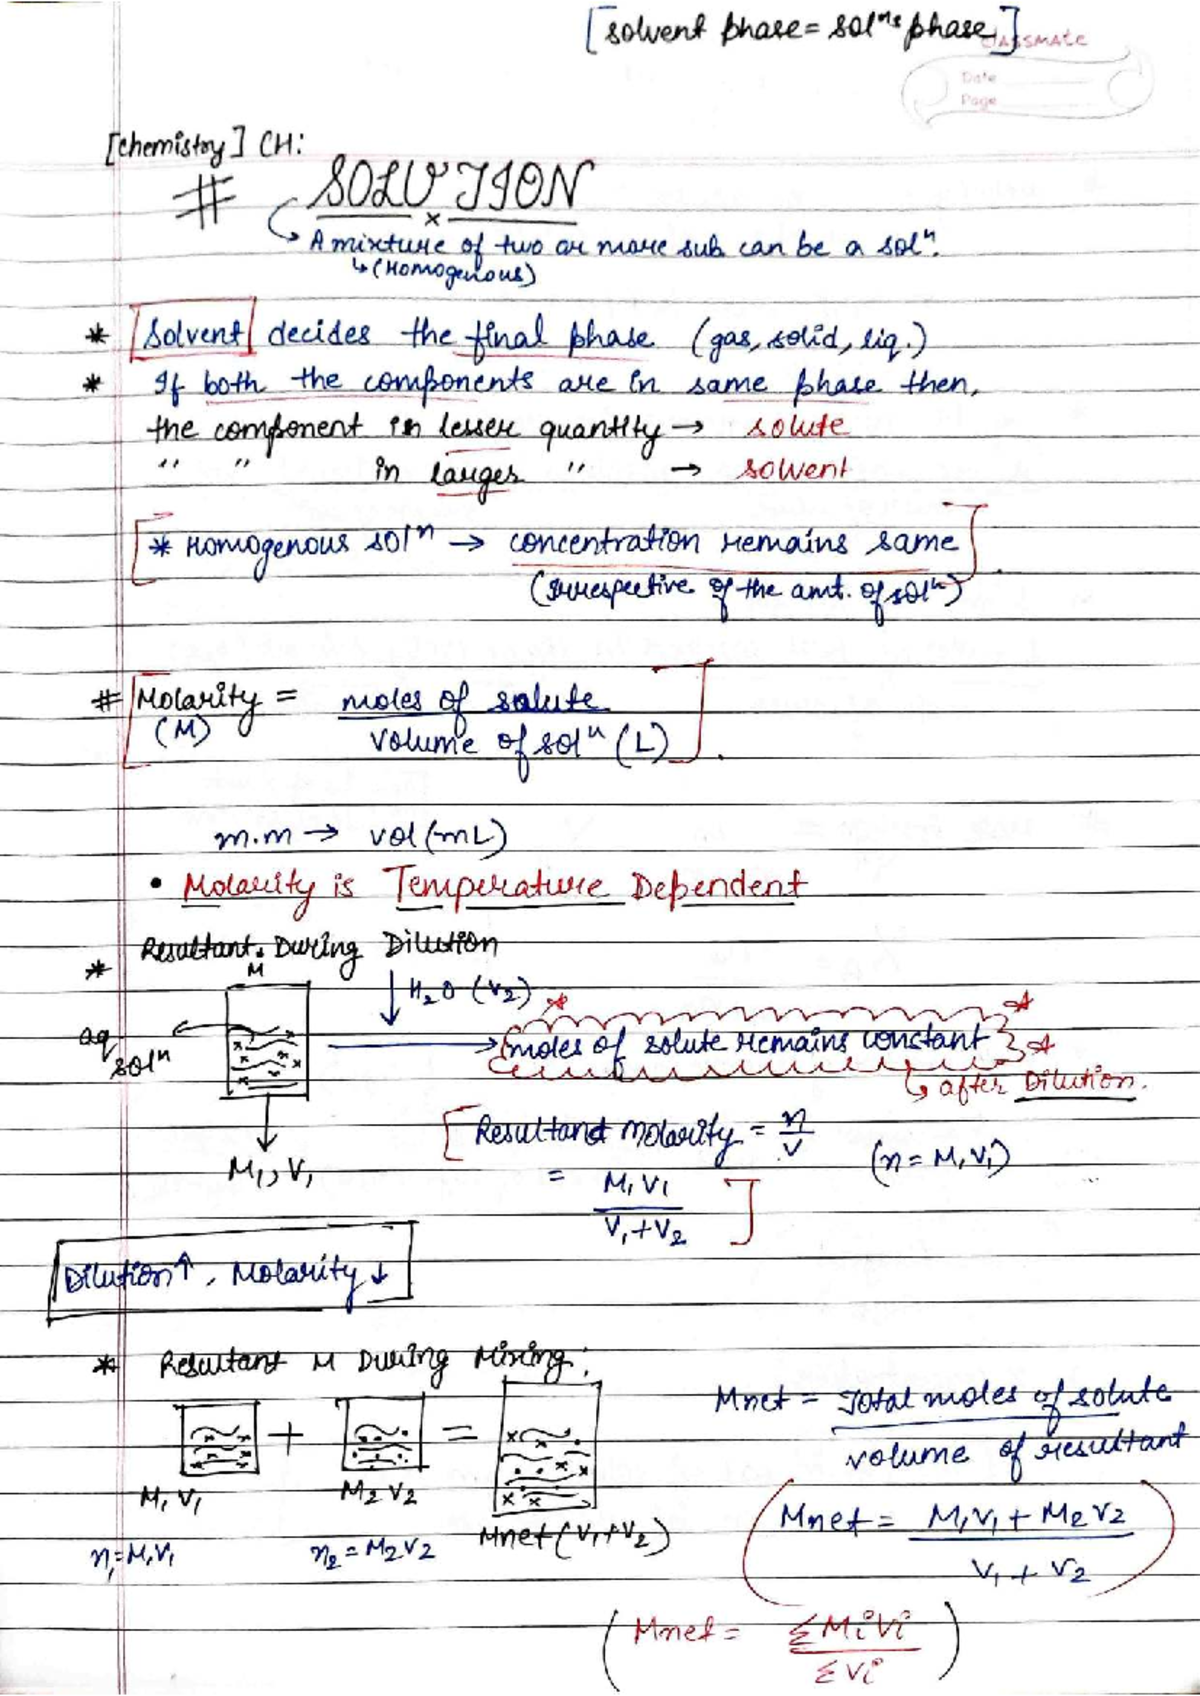 [solvent phase = solⁿˢ phase]
classmate
Date
Page
[chemistry] CH:
# SOLUTION
A mixture of two or more sub can be a solⁿ.
↳ (Homogenous)
* [Solvent] decides the final phase (gas, solid, liq.)
* If both the components are in same phase then,
the component in lesser quantity → solute
" " in larger " → solvent
[* Homogenous solⁿ → concentration remains same]
(irrespective of the amt. of solⁿ)
# [Molarity = moles of solute
(M) volume of solⁿ (L)]
m.m → vol (mL)
• Molarity is Temperature Dependent
* Resultant. During Dilution
M
H₂O (V₂)
aq solⁿ
moles of solute remains constant
↳ after Dilution.
M₁, V₁
[Resultand molarity = n/V (n = M₁V₁)
= M₁V₁/V₁+V₂]
Dilution↑, Molarity↓
* Resultant M During Mixing:
Mnet = Total moles of solute
volume of resultant
+ =
M₁ V₁
M₂ V₂
Mnet (V₁+V₂)
n₁ = M₁V₁
n₂ = M₂V₂
(Mnet = M₁V₁ + M₂V₂
V₁ + V₂)
(Mnet = ΣMiVi
ΣVi)